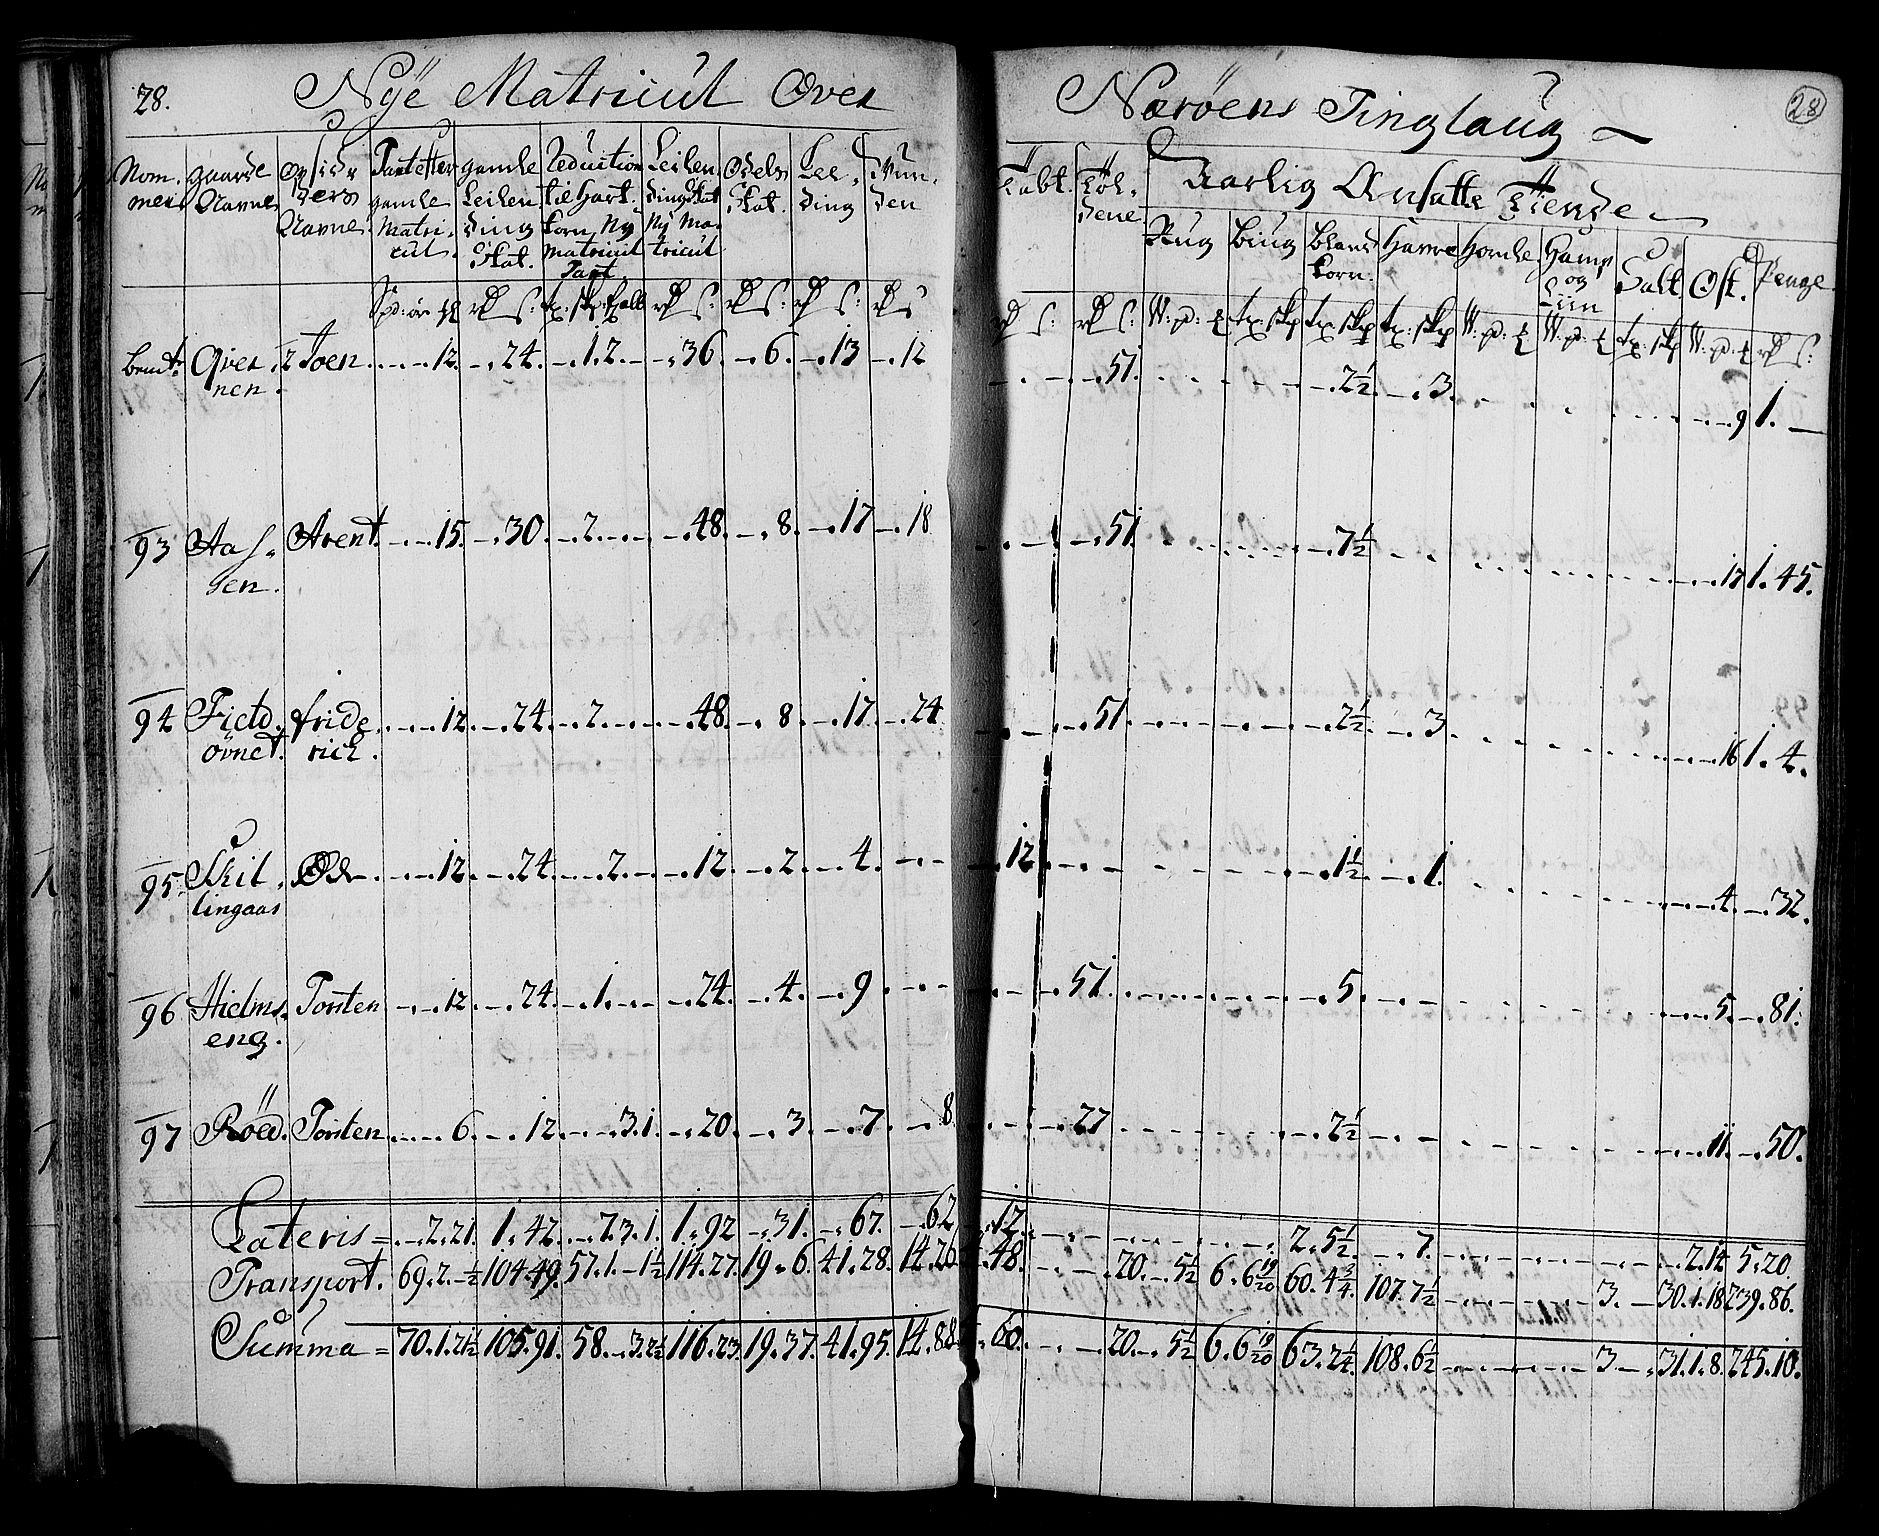 28. Nÿe Matricul Over Nærøens Tinglaug 28
Nom- mer Gaarde Navne Opsid- ders Navne. Pant efter gamle Matri- cul. gamle Leilen- ding Skat. Reduction til Hart- korn Nÿ matricul Pant Leilen- dingskat Nÿ Ma- tricul Odels Skat. Lee- ding
Aarlig Ansatte Tiende
Rug Biug Bland korn. Havre Homle Hamp og Liin Salt Ost. Penge
Qver- nen. 12 Joen. 12. 24. 1.2 36. 6. 13 12 51. 2½. 3. 9 1.
93 Aas- sen. Arent 15. 30. 2. 48. 8. 17 18 51. 7½ 17 1. 45.
94 Fictd. övnet. fride rich. 12. 24. 2. 48. 8. 17. 24 51. 2½. 3 16 1. 4.
95. Skil- lingaas Öde 12. 24. 2. 12. 2. 4. 12 1½. 1. 4. 32.
96 Hielms- eng. Torsten 12. 24. 1. 24. 4. 9 51. 5. 5. 81.
97 Röed. Torsten 6. 12. 3.1. 20. 3. 7. 8. 27 2½ 11. 50.
Lateris = 2.21. 1. 42. 2.3.1. 1. 92 31. 67. 62 12. 2. 5½. 7. 2.14 5. 20.
Transport. 69. 2. ½ 104.49. 57.1. 1½ 114. 27. 19. 6. 41. 28. 14. 26 48. 20. 5½ 6. 6 19/20 60. 4¾. 107. 7½ 3. 30. 1. 18 239. 86.
Summa = 70. 1. 21½ 105. 91. 58. 3. 2½ 116. 23. 19. 37. 41. 95. 14. 88 60. 20. 5½ 6. 6 19/20 63. 2¼ 108. 6½ 3. 31. 1. 8. 245. 10.